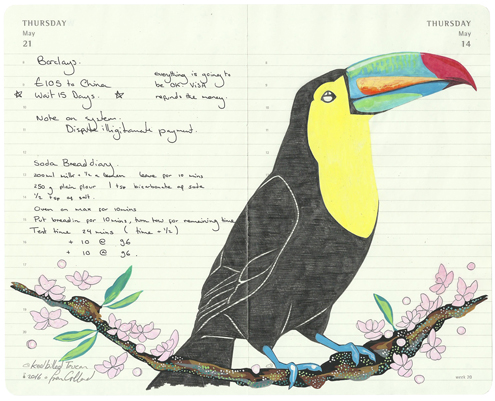 THURSDAY
May
21
THURSDAY
May
14
Barclays.
£105 to China
☆ Wait 15 Days. ☆
everything is going to
be OK. VISA
refunds the money.
Note on system.
Dispute illigitamate payment.
Soda Bread diary.
200ml milk + ½ a lemon leave for 10 mins
250 g plain flour 1 tsp bicarbonate of soda
½ tsp of salt.
Oven on max for 10mins
Put bread in for 10mins, turn low for remaining time
Test time 24 mins ( time + ½)
+ 10 @ 96
+ 10 @ 96.
Keel billed Toucan
2016
week 20